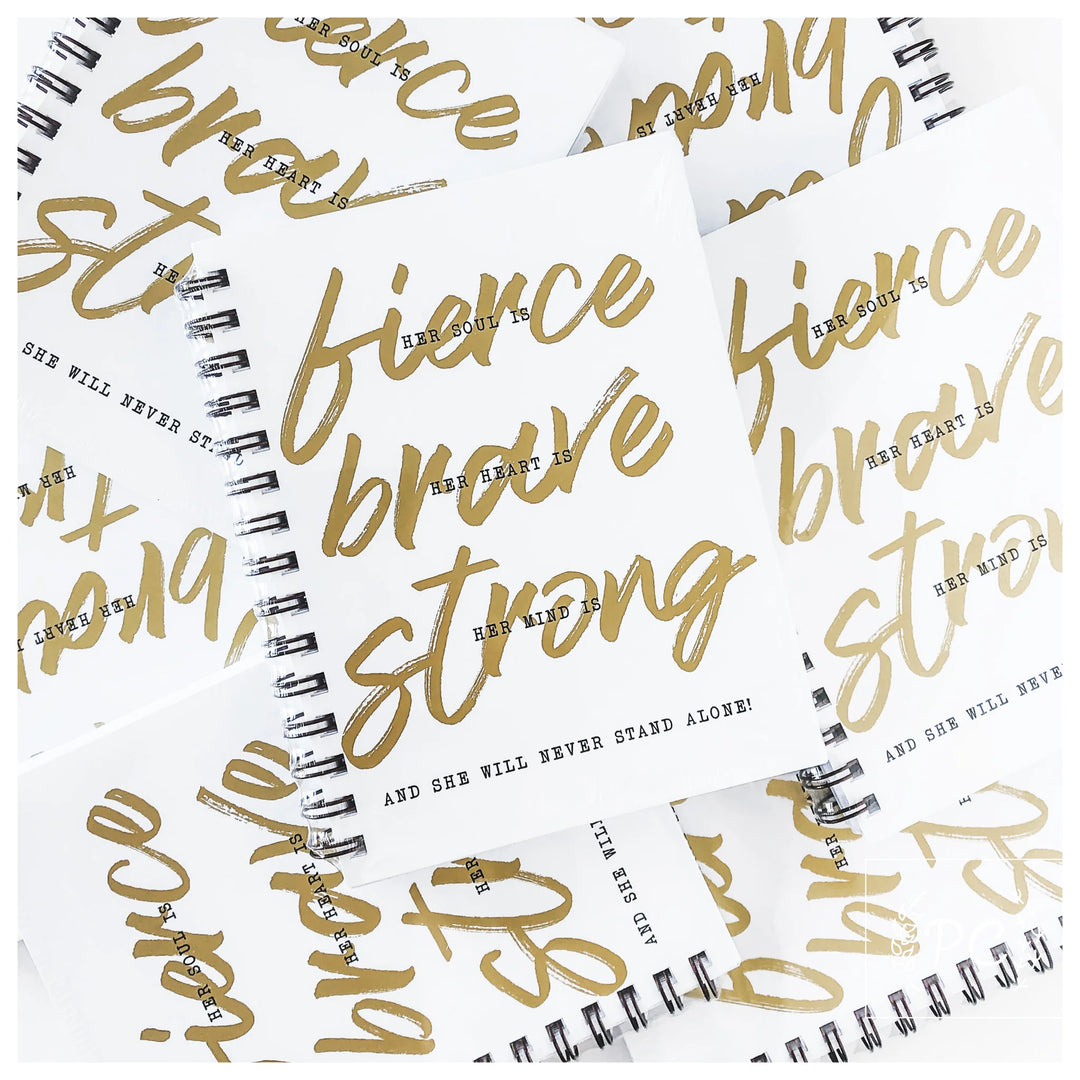 HER SOUL IS
fierce
HER HEART IS
brave
strong
HER
SHE WILL NEVER STA
HER HEART IS
brave
HER SOUL IS
fierce
HER HEART IS
brave
HER MIND IS
strong
AND SHE WILL NEVER STAND ALONE!
HER SOUL IS
fierce
HER HEART IS
brave
HER MIND IS
strong
AND SHE WILL NEVER
HER
HER HEART
brave
HER SOUL IS
fierce
HER HEART IS
brave
HER
AND SHE WILL
HER
PC